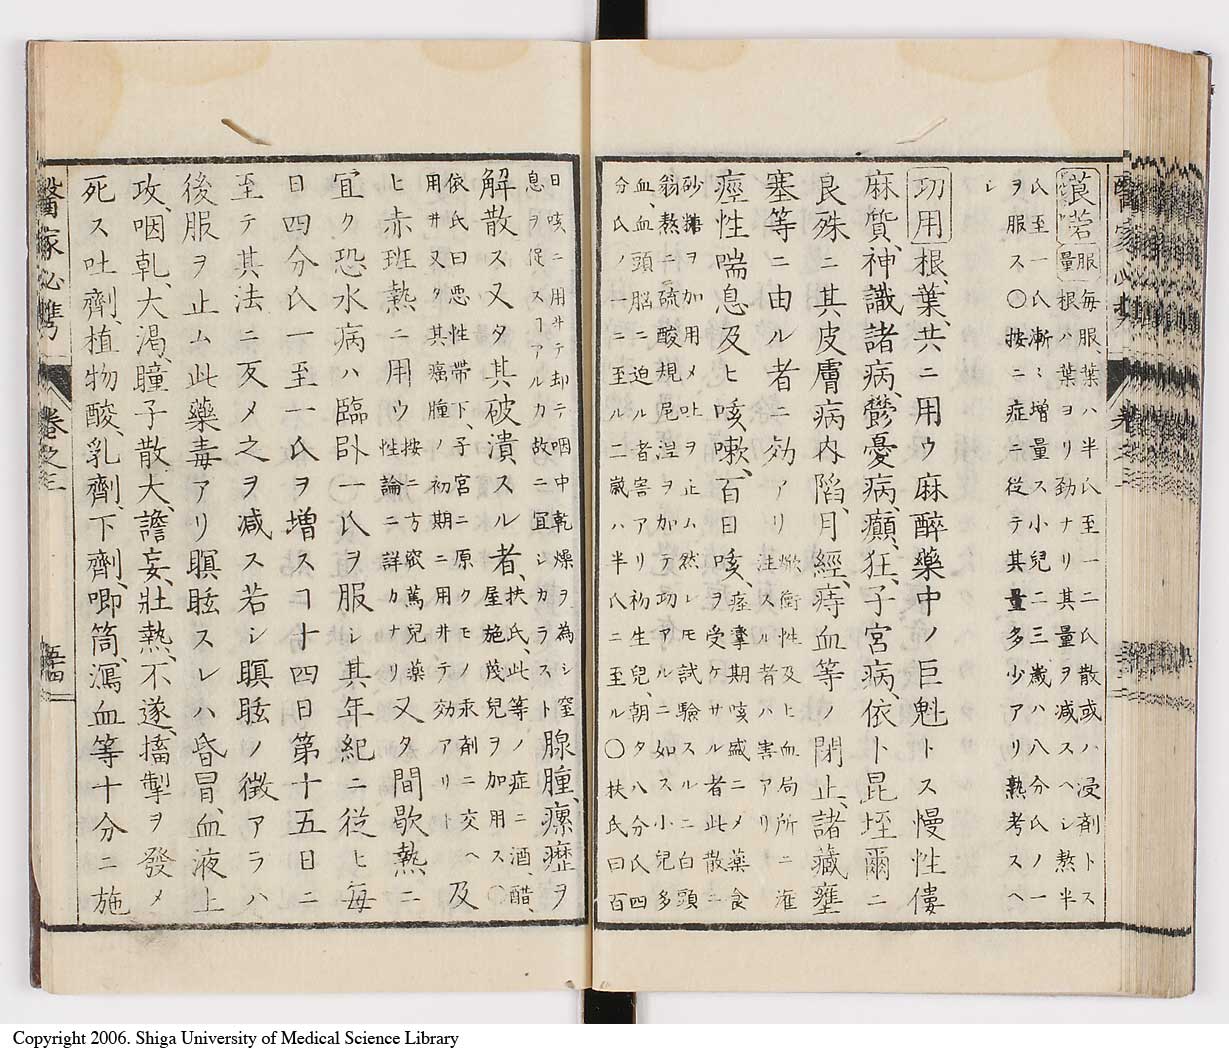 莨菪
服量 毎服、葉ハ半氏至一二氏散或ハ浸剤トス
根ハ葉ヨリ劲ナリ其量ヲ减スヘシ熬半
氏至一氏漸〻增量ス小兒二三歳ハ八分氏ノ一
ヲ服ス〇按ニ症ニ從テ其量多少アリ熱考スヘ
シ
功用 根、葉、共ニ用ウ麻醉藥中ノ巨魁トス慢性僂
麻質、神識諸病、鬱憂病、癲狂、子宮病、依卜昆垤爾ニ
良殊ニ其皮膚病内陷、月經、痔血等ノ閉止、諸藏壅
塞等ニ由ル者ニ効アリ
焮衝性及ヒ血局所ニ滙
注スル者ハ害アリ
痙性喘息及ヒ咳嗽、百日咳、
痙攣期咳盛ニメ藥食
ヲ受ケサル者此散ニ
砂糖ヲ加用メ吐ヲ止ム然レモ試驗スルニ白頭
翁熬ニ硫酸規尼涅ヲ加テ功アルニ如ス小兒多
血、血頭脳ニ迫ル者害アリ初生兒、朝夕八分氏四
分氏ノ一ニ至ル二歳ハ半氏ニ至ル〇扶氏曰百
日咳ニ用ヰテ却テ咽中乾燥ヲ為シ窒
息ヲ促スヿアルカ故ニ宜シカラスト
腺腫、瘰癧ヲ
解散ス又タ其破潰スル者、
扶氏、此等ノ症ニ酒、醋、
屋施茂兒ヲ加用ス〇
依氏曰悪性帶下、子宮ニ原クモノ汞剤ニ交ヘ
用ヰ又タ其癌腫ノ初期ニ用ヰテ効アリト
及
ヒ赤班熱ニ用ウ
按ニ方叢萬兒藥
性論ニ詳カナリ
又タ間歇熱ニ
宜ク恐水病ハ臨卧一氏ヲ服シ其年紀ニ從ヒ毎
日四分氏一至一氏ヲ增スヿ十四日第十五日ニ
至テ其法ニ反メ之ヲ减ス若シ瞑眩ノ徴アラハ
後服ヲ止ム此藥毒アリ瞑眩スレハ昏冒、血液上
攻、咽乹、大渴、瞳子散大、譫妄、壯熱、不遂、搐掣ヲ發メ
死ス吐劑、植物酸、乳劑、下劑、喞筒、瀉血等十分ニ施
醫家必携
卷之三
Copyright 2006. Shiga University of Medical Science Library